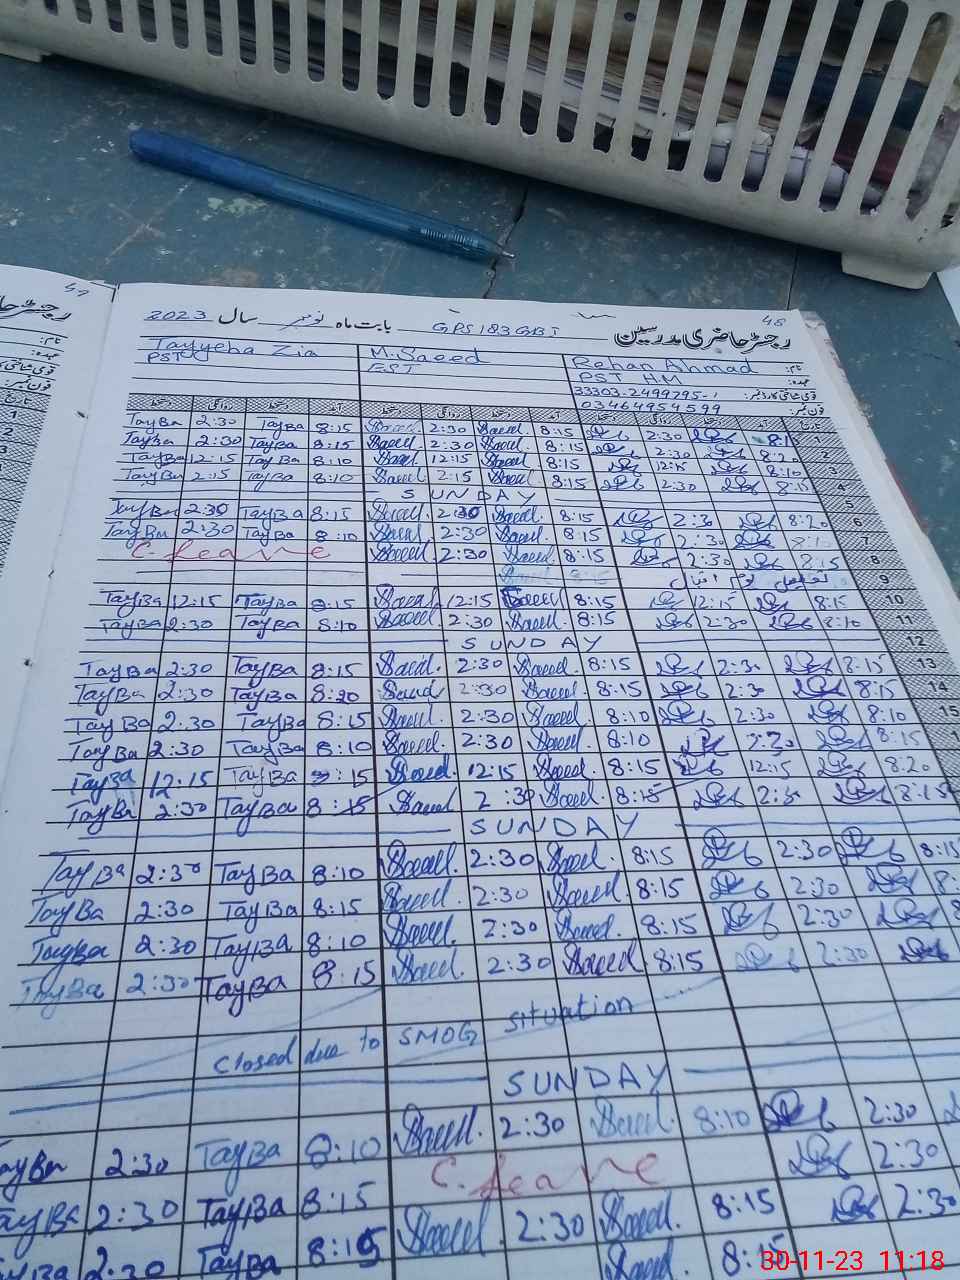 48
رجسٹر حاضری مدرسین GPS 183 GB I بابت ماہ نومبر سال 2023
نام: Rehan Ahmad M. Saeed Tayyeba Zia
عہدہ: PST HM EST PST
قومی شناختی کارڈ نمبر: 33303-2499295-1
فون نمبر: 03464954599
تاریخ آمد دستخط روانگی دستخط آمد دستخط روانگی دستخط آمد دستخط روانگی دستخط
TayBa 2:30 TayBa 8:15 Saeed 2:30 Saeed 8:15 2:30 1
TayBa 2:30 TayBa 8:15 Saeed 2:30 Saeed 8:15 2:30 8:20 2
TayBa 12:15 TayBa 8:10 Saeed 12:15 Saeed 8:15 12:15 8:10 3
TayBa 2:15 TayBa 8:10 Saeed 2:15 Saeed 8:15 2:30 8:15 4
SUNDAY 5
TayBa 2:30 TayBa 8:15 Saeed 2:30 Saeed 8:15 2:30 8:20 6
TayBa 2:30 TayBa 8:10 Saeed 2:30 Saeed 8:15 2:30 7
C. leave Saeed 2:30 Saeed 8:15 2:30 8:15 8
Saeed 8:15 تعطیل یوم اقبال 9
TayBa 12:15 TayBa 8:15 Saeed 12:15 Saeed 8:15 12:15 8:15 10
TayBa 2:30 TayBa 8:10 Saeed 2:30 Saeed 8:15 2:30 8:10 11
SUNDAY 12
TayBa 2:30 TayBa 8:15 Saeed 2:30 Saeed 8:15 2:30 8:15 13
TayBa 2:30 TayBa 8:20 Saeed 2:30 Saeed 8:15 2:30 8:15 14
TayBa 2:30 TayBa 8:15 Saeed 2:30 Saeed 8:10 2:30 8:10 15
TayBa 2:30 TayBa 8:10 Saeed 2:30 Saeed 8:10 2:30 8:15
TayBa 12:15 TayBa 8:15 Saeed 12:15 Saeed 8:15 12:15 8:20
TayBa 2:30 TayBa 8:15 Saeed 2:30 Saeed 8:15 2:30 8:15
SUNDAY
TayBa 2:30 TayBa 8:10 Saeed 2:30 Saeed 8:15 2:30 8:15
TayBa 2:30 TayBa 8:15 Saeed 2:30 Saeed 8:15 2:30
TayBa 2:30 TayBa 8:10 Saeed 2:30 Saeed 8:15 2:30
TayBa 2:30 TayBa 8:15 Saeed 2:30 Saeed 8:15 2:30
Closed due to SMOG situation
SUNDAY
TayBa 2:30 TayBa 8:10 Saeed 2:30 Saeed 8:10 2:30
TayBa 2:30 TayBa 8:15 C. leave 2:30
TayBa 2:30 TayBa 8:15 Saeed 2:30 Saeed 8:15 2:30
Saeed 8:15
30-11-23 11:18